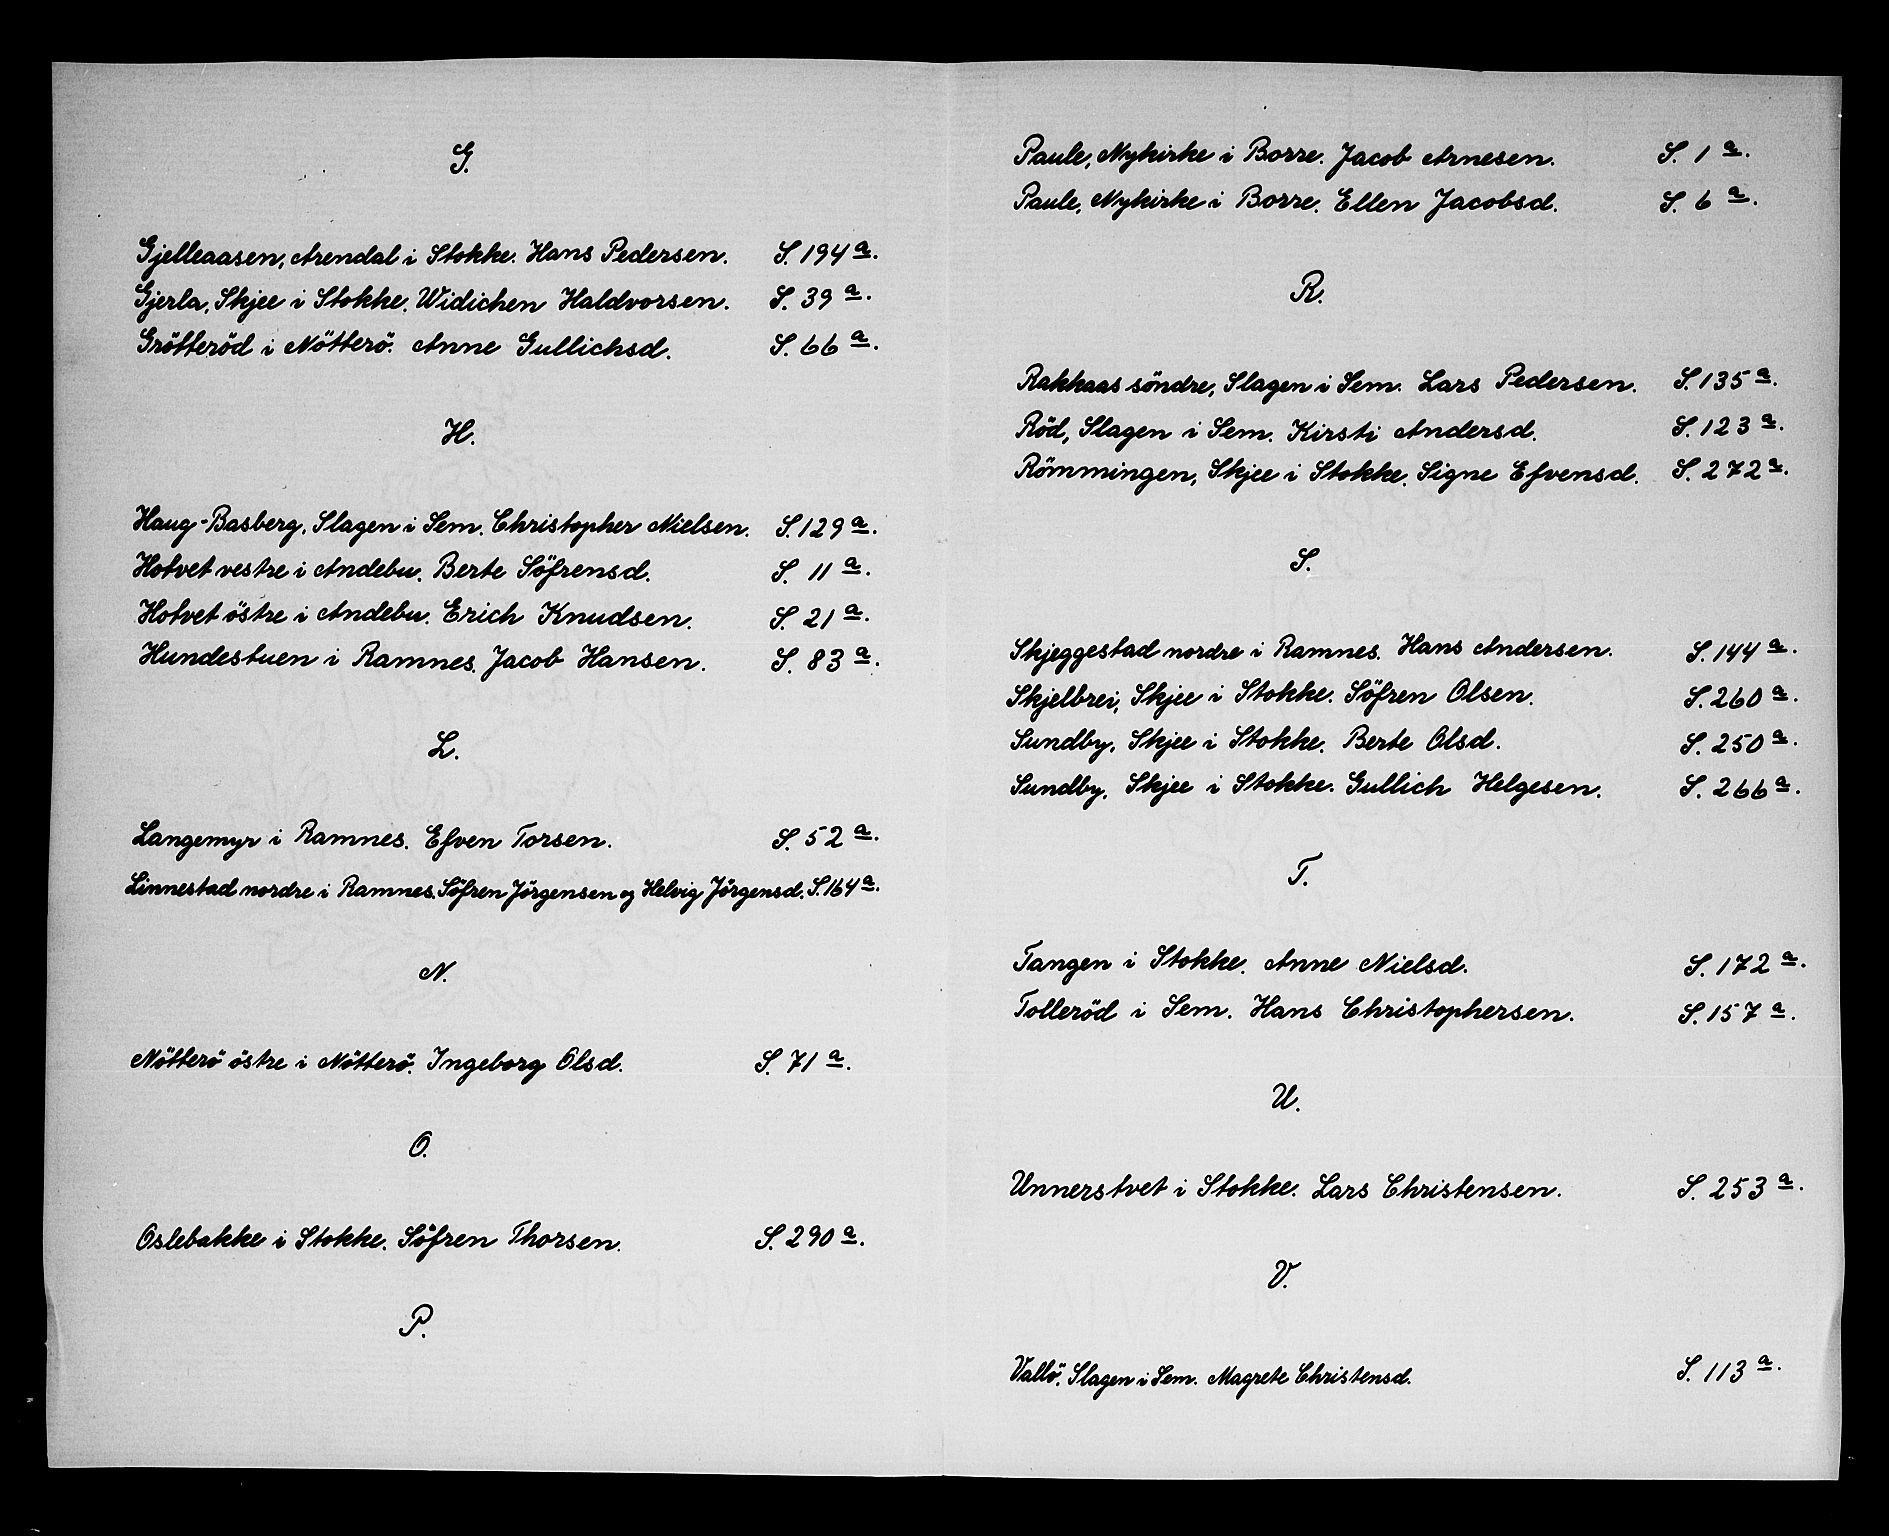 G.
Gjelleaasen, Arendal i Stokke. Hans Pedersen. S. 194 a.
Gjerla, Skjee i Stokke. Widichen Haldvorsen. S. 39 a.
Grötteröd i Nötterö. Anne Gullichsd. S. 66 a.
H.
Haug-Basberg, Slagen i Sem. Christopher Nielsen. S. 129 a.
Hotvet vestre i Andebu. Berte Söfrensd. S. 11 a.
Hotvet östre i Andebu. Erich Knudsen. S. 21 a.
Hundestuen i Ramnes. Jacob Hansen. S. 83 a.
L.
Langemyr i Ramnes. Efven Torsen. S. 52 a.
Linnestad nordre i Ramnes. Söfren Jörgensen og Helvig Jörgensd. S. 164 a.
N.
Nötterö östre i Nötterö. Ingeborg Olsd. S. 71 a.
O.
Oslebakke i Stokke. Söfren Thorsen. S. 290 a.
P.
Paule, Nykirke i Borre. Jacob Arnesen. S. 1 a.
Paule, Nykirke i Borre. Ellen Jacobsd. S. 6 a.
R.
Rakkaas söndre, Slagen i Sem. Lars Pedersen. S. 135 a.
Röd, Slagen i Sem. Kirsti Andersd. S. 123 a.
Römmingen, Skjee i Stokke. Signe Efvensd. S. 272 a.
S.
Skjeggestad nordre i Ramnes. Hans Andersen. S. 144 a.
Skjelbrei, Skjee i Stokke. Söfren Olsen. S. 260 a.
Sundby, Skjee i Stokke. Berte Olsd. S. 250 a.
Sundby, Skjee i Stokke. Gullich Helgesen. S. 266 a.
T.
Tangen i Stokke. Anne Nielsd. S. 172 a.
Tolleröd i Sem. Hans Christophersen. S. 157 a.
U.
Unnerstvet i Stokke. Lars Christensen. S. 253 a.
V.
Vallö, Slagen i Sem. Magrete Christensd. S. 113 a.